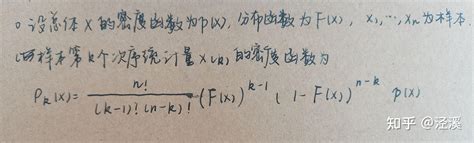 。设总体X的密度函数为p(x),分布函数为F(x),x₁,…,xₙ为样本.
样本第k个次序统计量x₍ₖ₎的密度函数为
Pₖ(x)= n!/((k-1)!(n-k)!) (F(x))^{k-1} (1-F(x))^{n-k} p(x)
知乎 @泾溪